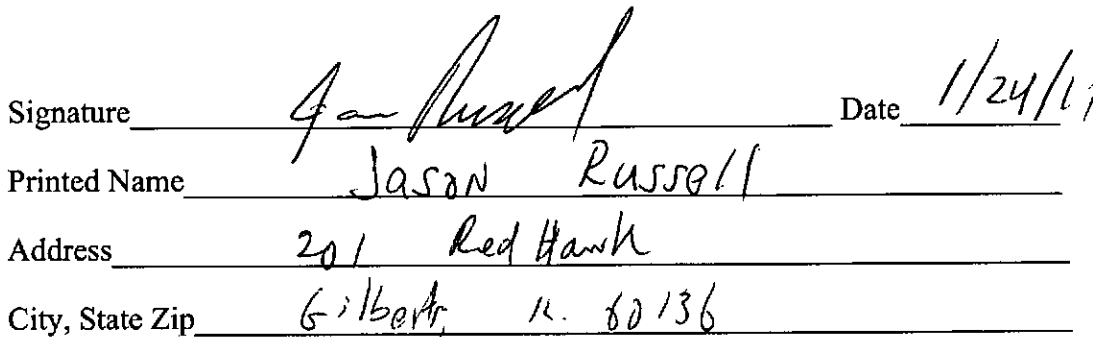 Signature Jason Russell Date 1/24/1
Printed Name Jason Russell
Address 201 Red Hawk
City, State Zip Gilberts, IL. 60136